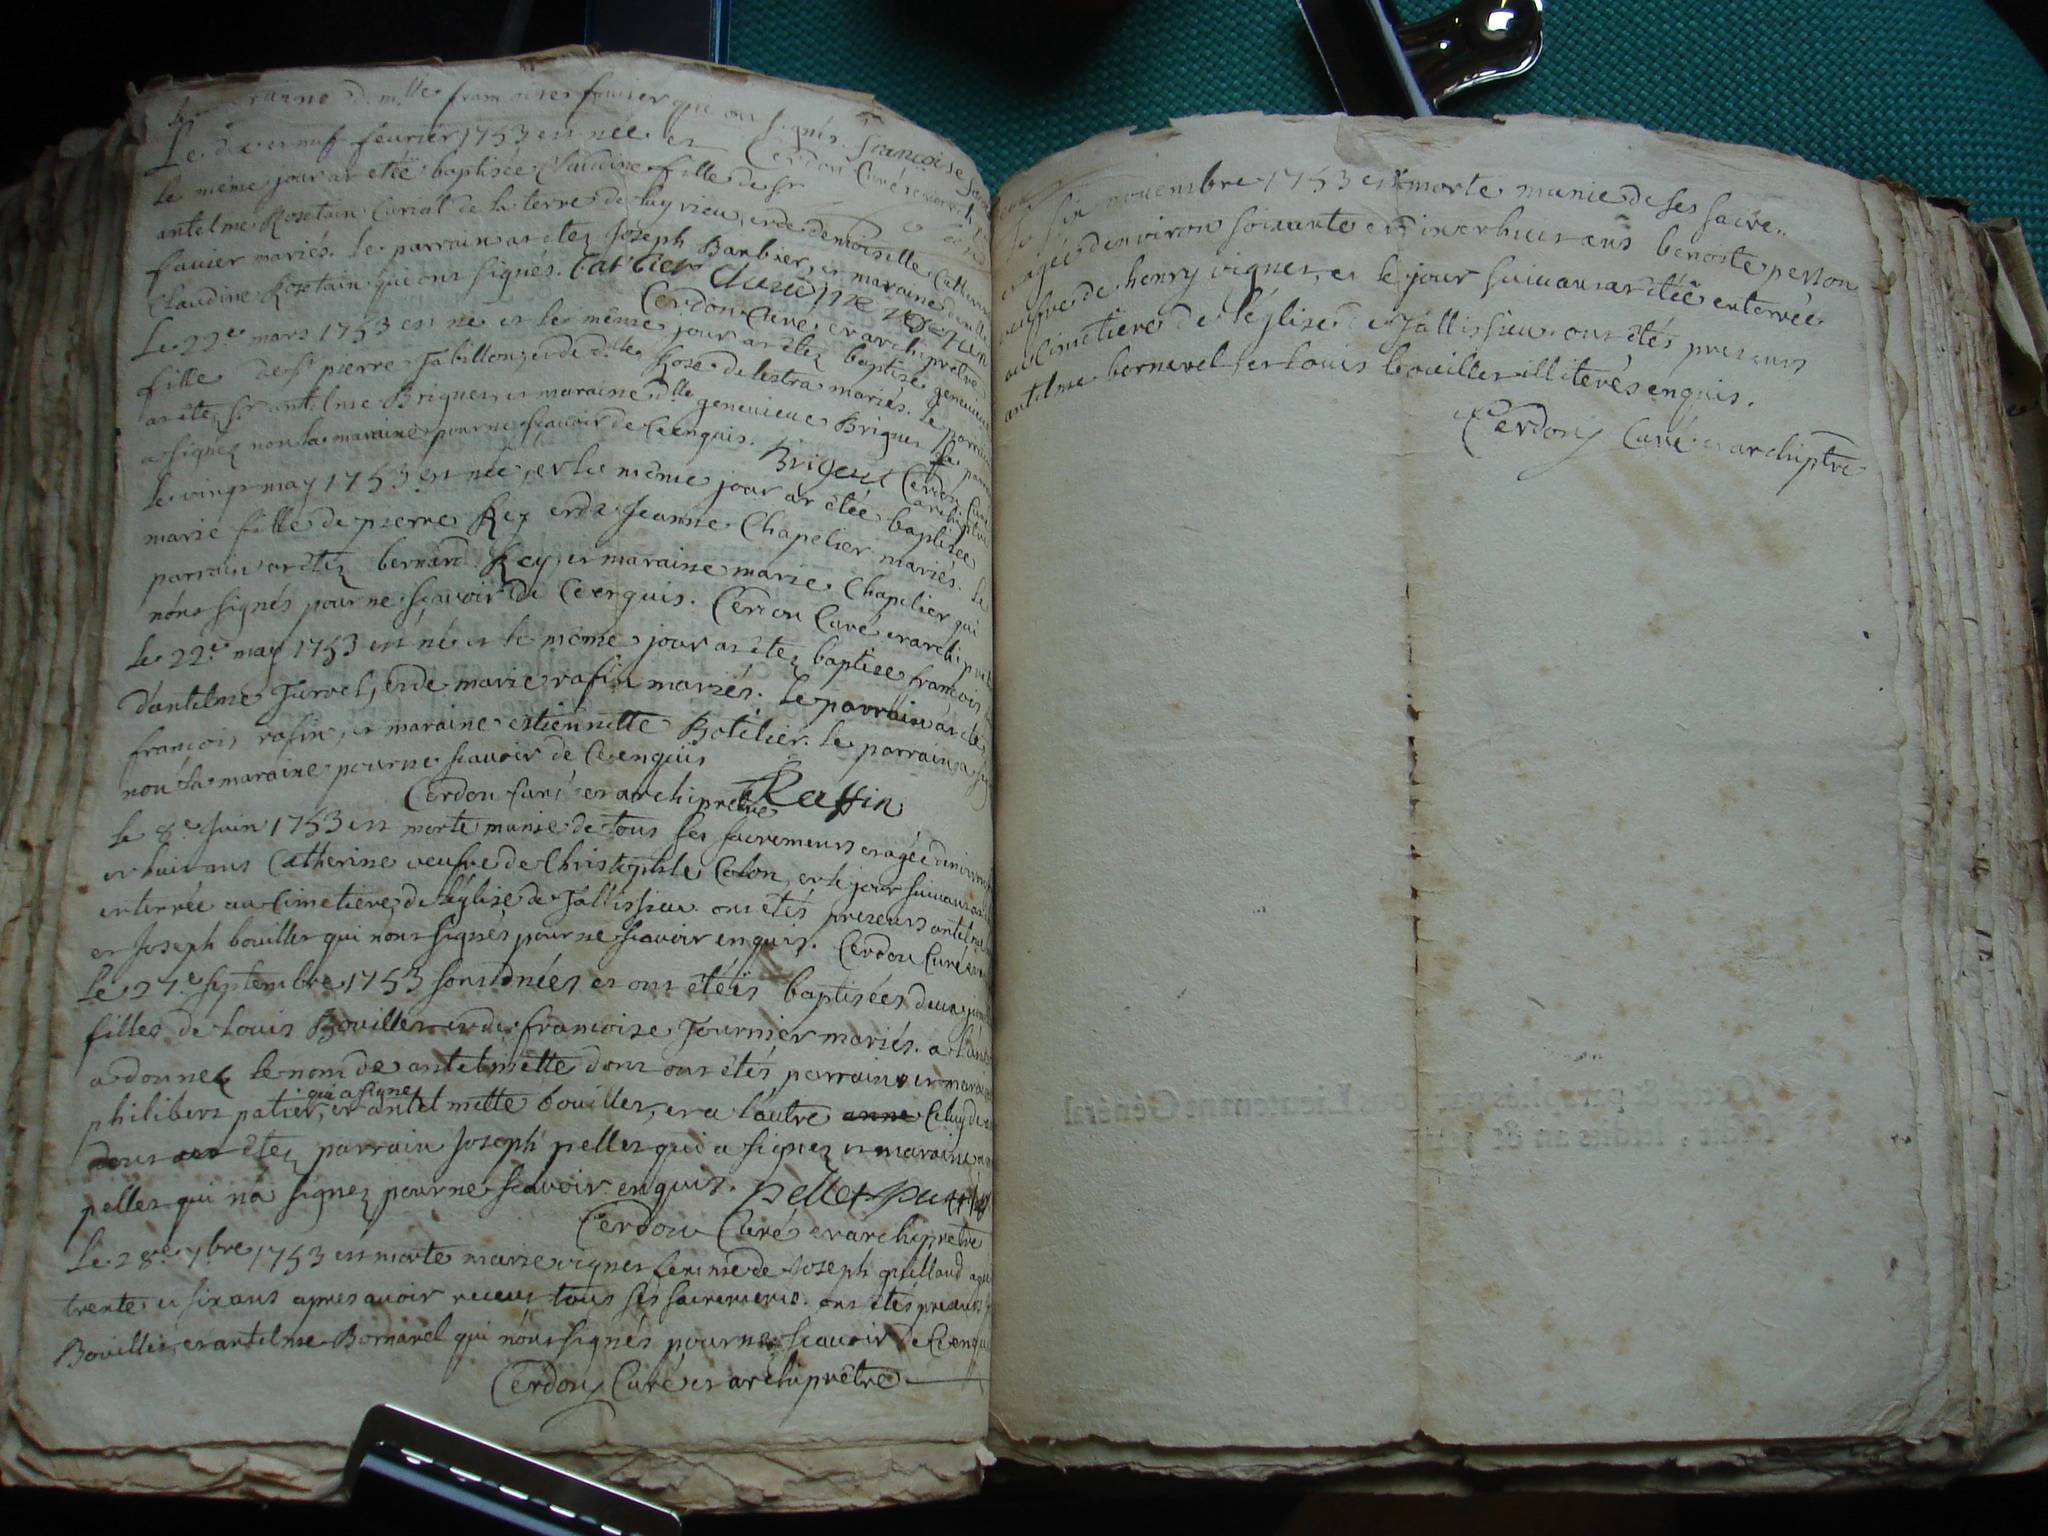 maraine d'emlle francoise favier qui ont signés. françoise
Cerdon Curé
Le dix et neuf fevrier 1753 est née et
le même jour at etëe baptisée Claudine fille de sr
antelme Rosetain Curial de la terre de luyrieu, et de demoiselle Catherine
favier mariés. le parrain at étez Joseph Barbier, et maraine demlle
Claudine Rosetain qui ont signés. barbier Claudine
Cerdon Curé et archiprêtre
Le 22e mars 1753 est né et le même jour at étez baptisé genevieve
fille de sr pierre Jabillon, et de dlle Rose delestra mariés. le parrain
at étez sr antelme Briguet, et maraine dlle genevieve Briguet le parrain
a signéz non la maraine pour ne scavoir de Ce enquis. Briguet Cerdon Curé
archiptre
Le vingt may 1753 est née, et le même jour at étée baptisée
marie fille de pierre Rey et de Jeanne Chapelier mariés. Le
parrain at étez bernard Rey, et maraine marie Chapelier qui
nont signés pour ne scavoir de Ce enquis. Cerdon Curé et archiprêt
Le 22e may 1753 est né et le même jour at étez baptisé francois
d'antelme Jurvel, et de marie rafin mariés. le parrain at été
francois rafin, et maraine estiennette Botelier. le parrain a
non la maraine pour ne scavoir de Ce enquis
Cerdon Curé et archiprêtre Raffin
le 8e Juin 1753 est morte munie de tous ses sacremens et agée denviron
et huit ans Catherine veufve de Christophle Colon, et le jour suivant at
enterrée au Cimetiere de l'église de Jallissieu. ont étés presents antelme
et Joseph bouillet qui nont signés pour ne scavoir enquis. Cerdon Curé
Le 27e septembre 1753 sont nées et ont étéës baptisées deux
filles de Louis Bouillet et de francoise Journier mariés. a l'une
a donnez le nom de antelmette dont ont étés parrain et maraine
qui a signé
philibert patier, et antelmette bouillet, et a l'autre anne Celuy de
dont at étez parrain Joseph pellet qui a signez et maraine
pellet qui na signez pour ne scavoir enquis. pellet
Cerdon Curé et archiprêtre
Le 28e 7bre 1753 est morte marie vignet femme de Joseph guillaud agée
trente et six ans apres avoir receut tous ses sacremens. ont étés present
Bouillet, et antelme Bornarel qui n'ont signés pour ne scavoir de Ce enqu
Cerdon Curé et archiprêtre
Le six novembre 1753 est morte munie de ses sacre..
et agée denviron soixante et dix et huit ans benoite person
veufve de henry vignet, et le jour suivant at étéë enterrée
au Cimetiere de l'église de Jallissieu. ont étés presents
antelme bernerel, et Louis bouillet illiterés enquis.
Cerdon Curé et archiptre